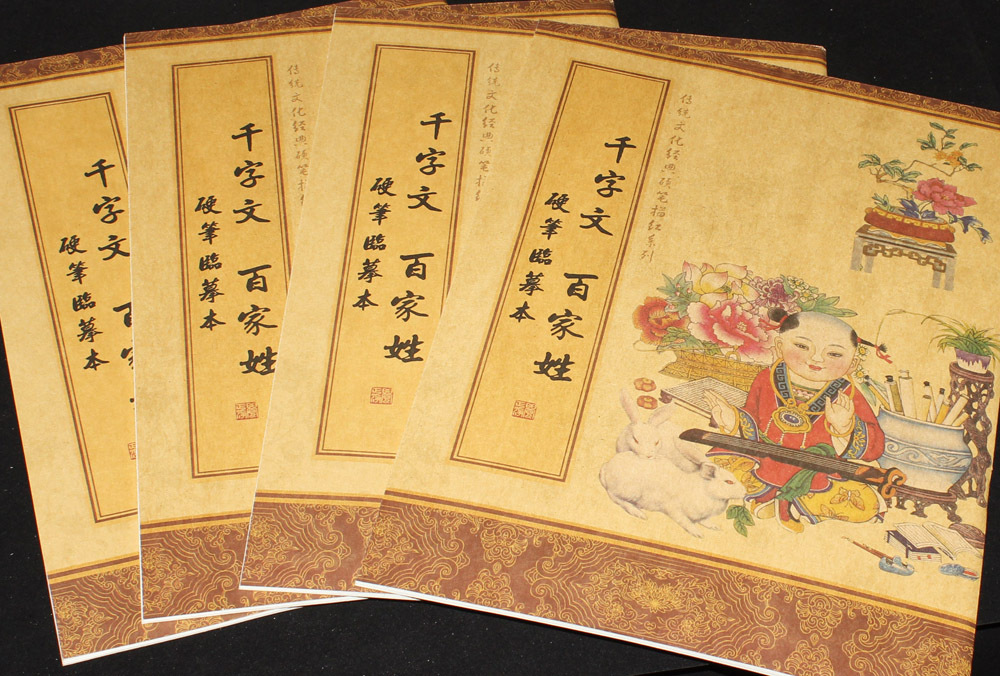 千字文 百家
硬筆臨摹本
传统文化经典硬笔
千字文 百家姓
硬筆臨摹本
传统文化经典硬笔
千字文 百家姓
硬筆臨摹本
传统文化经典硬笔描红系列
千字文 百家姓
硬筆臨摹本